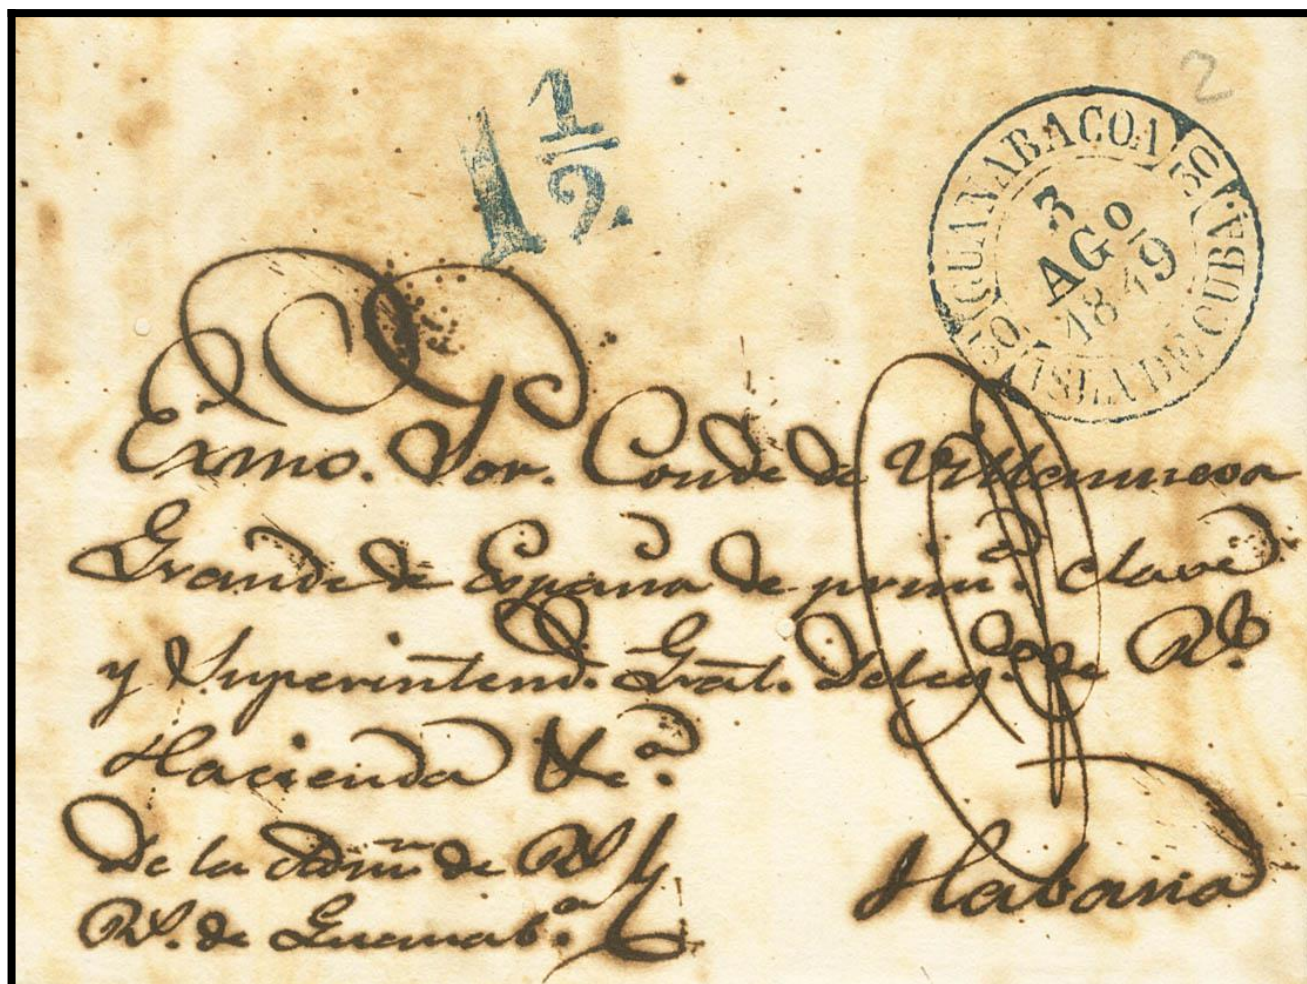 2
1 1/2
GUANABACOA 30.
3
AGO
1849
30. ISLA DE CUBA.
Exmo. Sor. Conde de Villanueva
Grande de España de prim.a clase
y Superintend. Gral. Deleg.do de Rl.
Hacienda &c.a
De la Admn. de Rs.
Rs. de Guanab.a
Habana